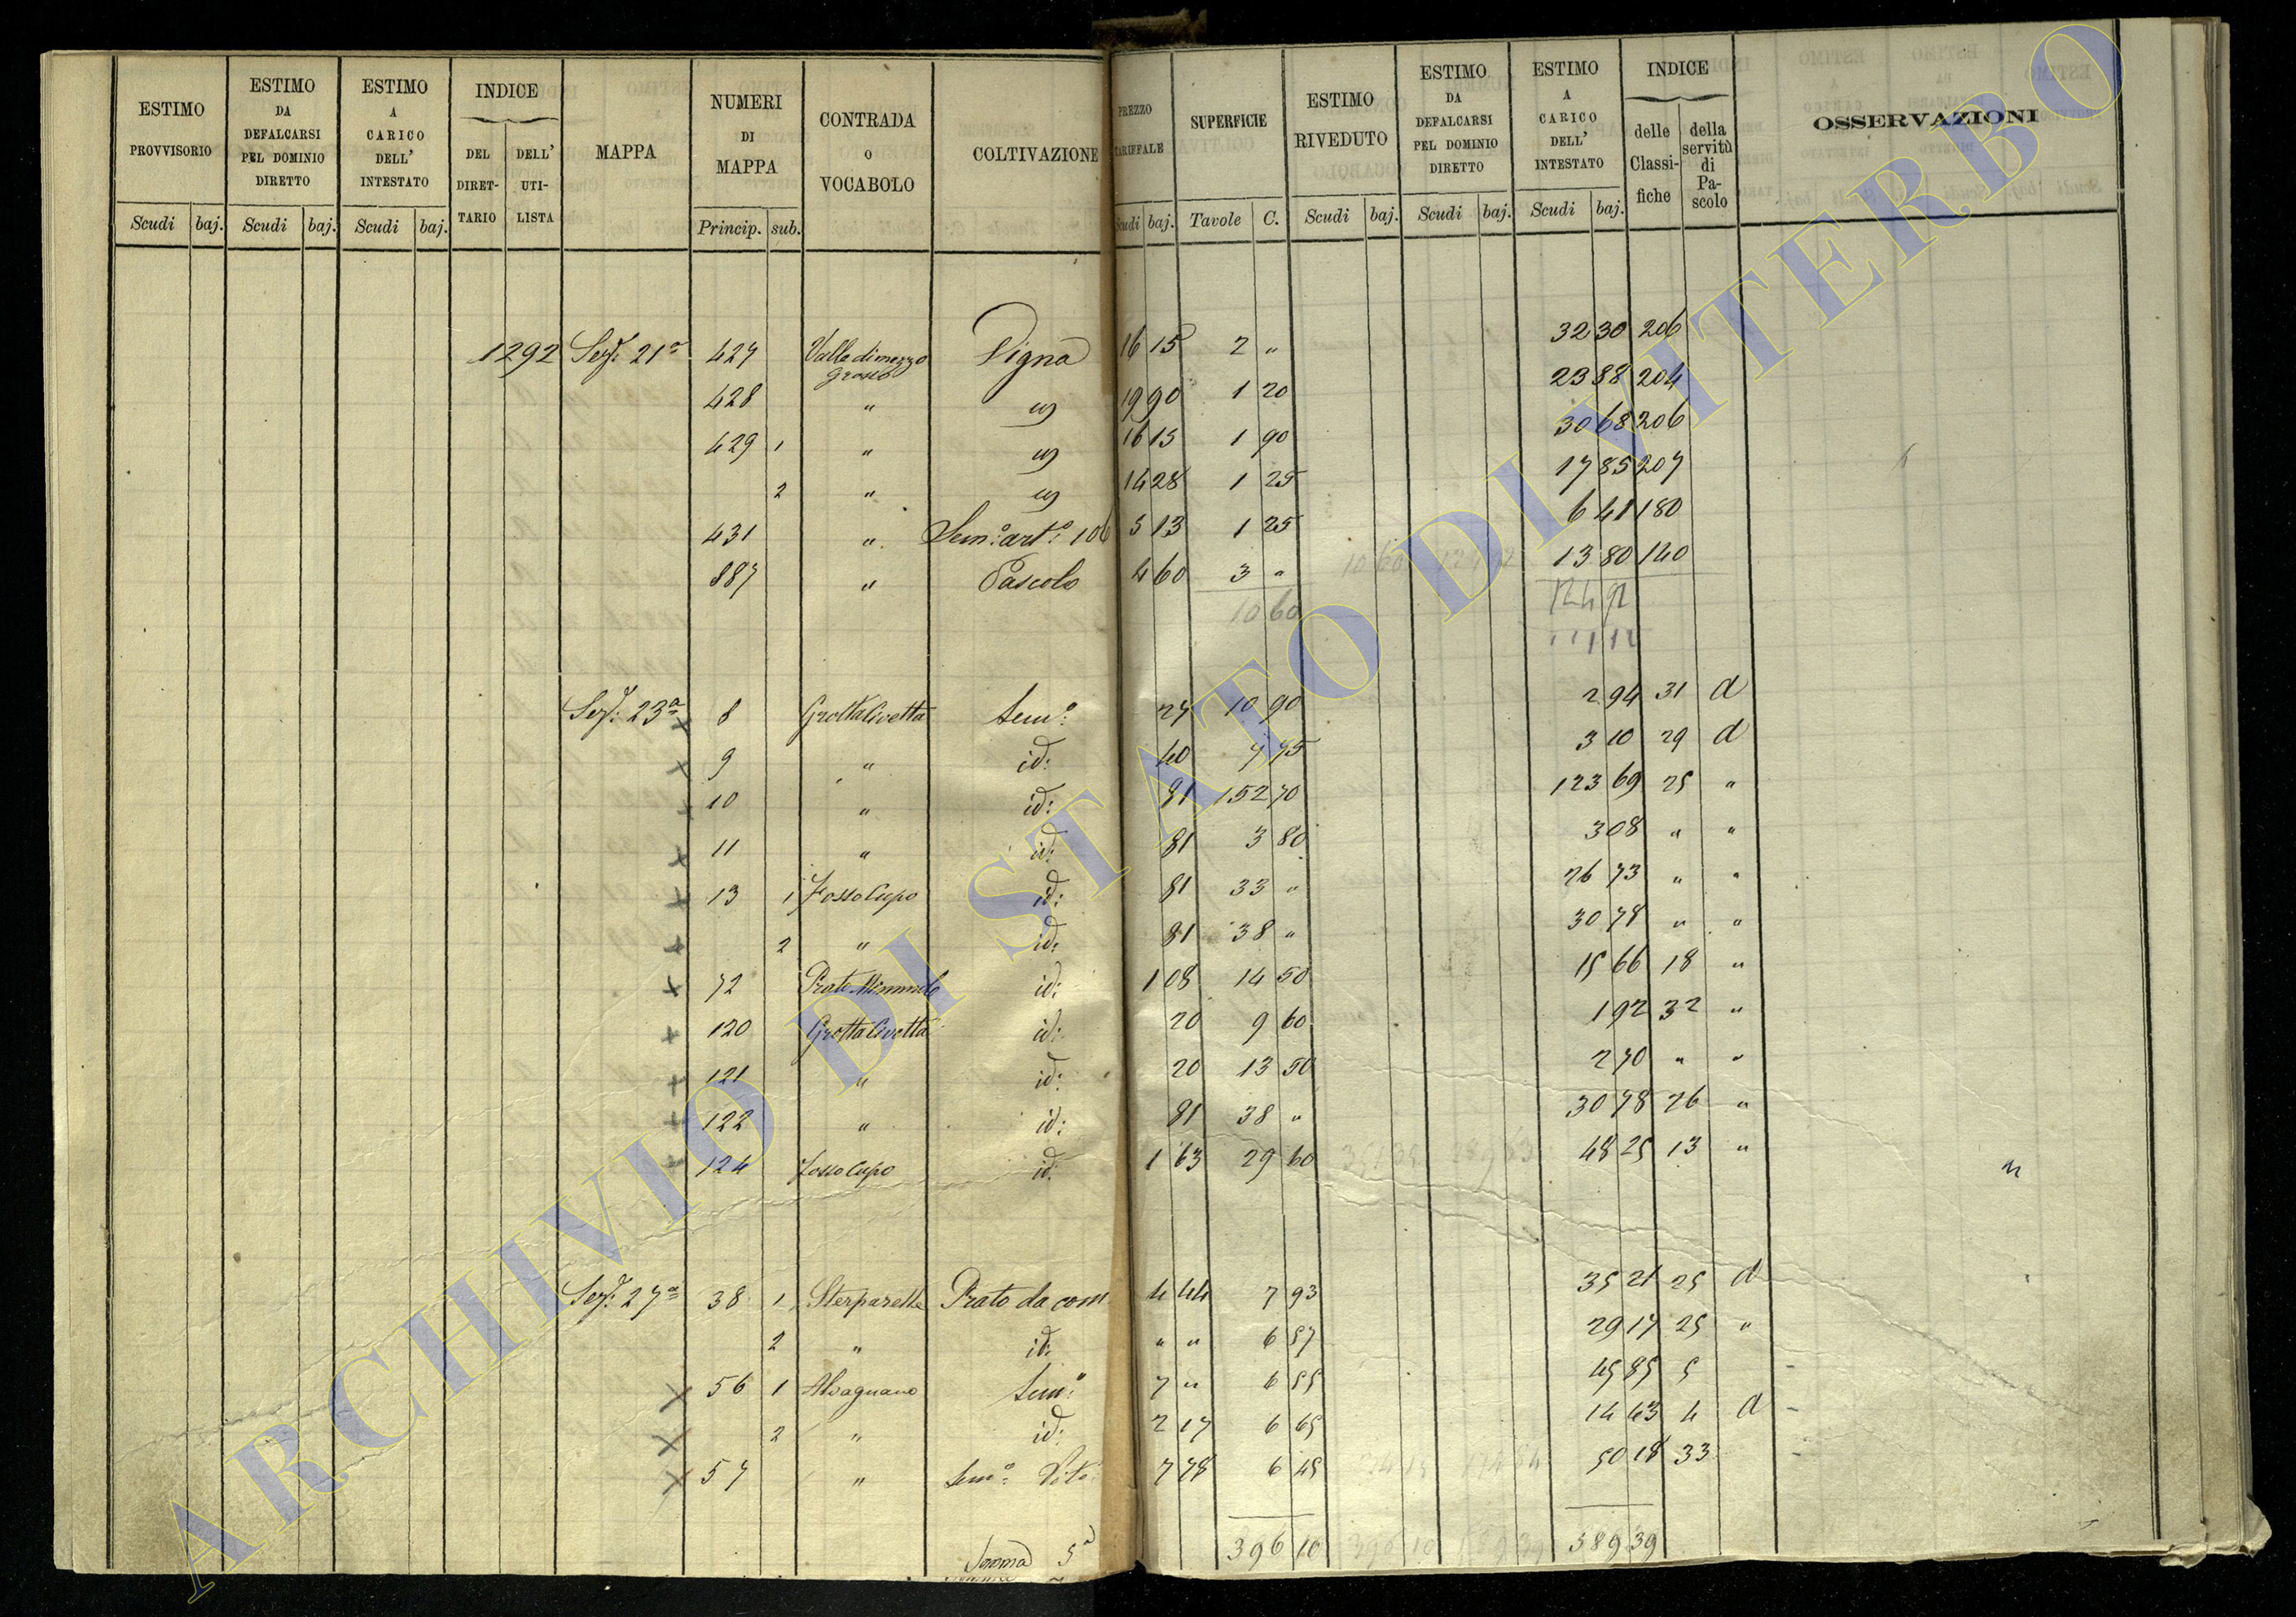 ESTIMO PROVVISORIO | ESTIMO DA DEFALCARSI PEL DOMINIO DIRETTO | ESTIMO A CARICO DELL' INTESTATO | INDICE DEL DIRETTARIO | DELL' UTILISTA | MAPPA | NUMERI DI MAPPA | CONTRADA O VOCABOLO | COLTIVAZIONE | PREZZO TARIFFALE | SUPERFICIE | ESTIMO RIVEDUTO | ESTIMO DA DEFALCARSI PEL DOMINIO DIRETTO | ESTIMO A CARICO DELL' INTESTATO | INDICE delle Classifiche | della servitù di Pascolo | OSSERVAZIONI
Scudi baj. Scudi baj. Scudi baj. Princip. sub. Scudi baj. Tavole C. Scudi baj. Scudi baj. Scudi baj.
1292 Sez: 21a 427 Valle di mezzo grosso Vigna 16 15 2 " 32 30 206
428 " id 19 90 1 20 23 88 204
429 1 " id 16 15 1 90 30 68 206
2 " id 14 28 1 25 17 85 207
431 " Sem:o art:o 106 5 13 1 25 6 41 180
887 " Pascolo 4 60 3 " 13 80 140
10 60 124 92
Sez: 23a 8 Grotta Civetta Sem:o 27 10 90 2 94 31 d
9 " id: 40 7 75 3 10 29 d
10 " id: 81 152 70 123 69 25 "
11 " id: 81 3 80 3 08 " "
13 1 Fosso Cupo id: 81 33 " 26 73 " "
2 " id: 81 38 " 30 78 " "
72 Prato id: 1 08 14 50 15 66 18 "
120 Grotta Civetta id: 20 9 60 1 92 32 "
121 " id: 20 13 50 2 70 " "
122 " id: 81 38 " 30 78 26 "
124 Fosso Cupo id: 1 63 29 60 48 25 13 "
Sez: 27a 38 1 Sterparelle Prato da com 4 44 7 93 35 21 25 d
2 " id: " " 6 57 29 17 25 "
56 1 Alvagnano Sem:o 7 " 6 55 45 85 5
2 " id: 2 17 6 65 14 43 4 d
57 " Sem:o Vit: 7 78 6 45 50 18 33
Somma 5a 396 10 589 39
ARCHIVIO DI STATO DI VITERBO